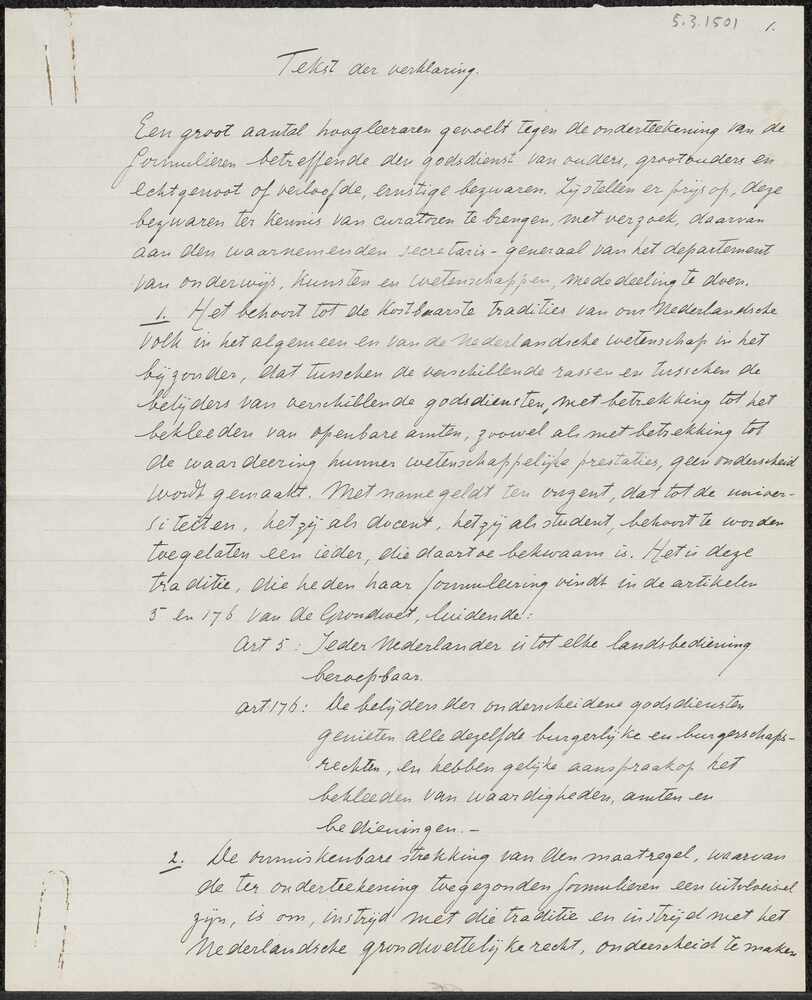 5.3.1501 1.
Tekst der verklaring.
Een groot aantal hoogleeraren gevoelt tegen de onderteekening van de
formulieren betreffende den godsdienst van ouders, grootouders en
echtgenoot of verloofde, ernstige bezwaren. Zij stellen er prijs op, deze
bezwaren ter kennis van curatoren te brengen, met verzoek, daarvan
aan den waarnemenden secretaris-generaal van het departement
van onderwijs, kunsten en wetenschappen, mededeeling te doen.
1. Het behoort tot de kostbaarste tradities van ons Nederlandsche
volk in het algemeen en van de Nederlandsche wetenschap in het
bijzonder, dat tusschen de verschillende rassen en tusschen de
belijders van verschillende godsdiensten, met betrekking tot het
bekleeden van openbare amten, zoowel als met betrekking tot
de waardeering hunner wetenschappelijke prestaties, geen onderscheid
wordt gemaakt. Met name geldt ten onzent, dat tot de univer-
siteiten, hetzij als docent, hetzij als student, behoort te worden
toegelaten een ieder, die daartoe bekwaam is. Het is deze
traditie, die heden haar formuleering vindt in de artikelen
5 en 176 van de Grondwet, luidende:
Art 5: Ieder Nederlander is tot elke landsbediening
beroepbaar.
art 176: De belijders der onderscheidene godsdiensten
genieten alle dezelfde burgerlijke en burgerschaps-
rechten, en hebben gelijke aanspraak op het
bekleeden van waardigheden, amten en
bedieningen.-
2. De onmiskenbare strekking van den maatregel, waarvan
de ter onderteekening toegezonden formulieren een uitvloeisel
zijn, is om, in strijd met die traditie en in strijd met het
Nederlandsche grondwettelijke recht, onderscheid te maken